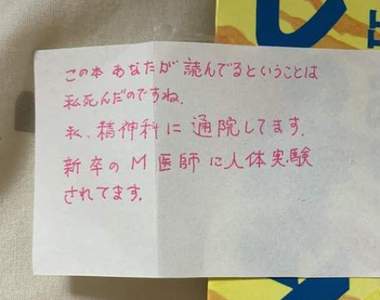 この本 あなたが 読んでるということは
私死んだのですね.
私、精神科に通院してます.
新卒のM医師に人体実験
されてます.